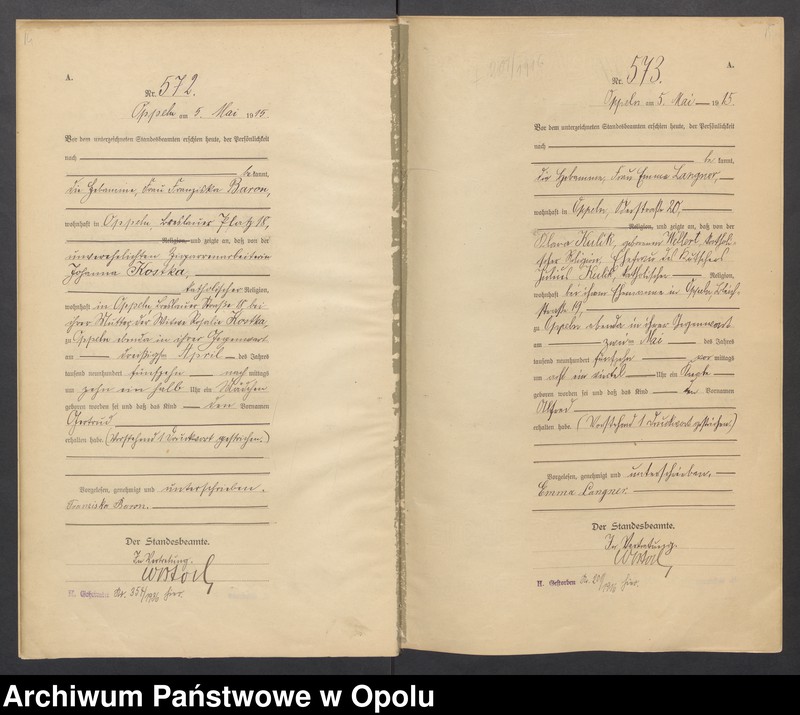 A.
Nr. 572.
Oppeln am 5. Mai 1915.
Vor dem unterzeichneten Standesbeamten erschien heute, der Persönlichkeit
nach
be kannt,
die Hebamme, Frau Franziska Baron,
wohnhaft in Oppeln, Breslauer Platz 18,
Religion, und zeigte an, daß von der
unverehelichten Zigarrenarbeiterin
Johanna Kostka,
katholischer Religion,
wohnhaft in Oppeln, Breslauer bei
ihrer Mutter, der Witwe Rosalie Kostka,
zu Oppeln ebenda in ihrer Gegenwart
am dreißigsten April des Jahres
tausend neunhundert fünfzehn nach mittags
um zehn ein halb Uhr ein Mädchen
geboren worden sei und daß das Kind den Vornamen
Gertrud
erhalten habe. (Vorstehend 1 Druckwort gestrichen.)
Vorgelesen, genehmigt und unterschrieben.
Franziska Baron.
Der Standesbeamte.
In Vertretung.
Nr. 354/1916 hier.
A.
Nr. 573.
Oppeln am 5. Mai 1915.
Vor dem unterzeichneten Standesbeamten erschien heute, der Persönlichkeit
nach
be kannt,
die Hebamme, Frau Emma Langner,
wohnhaft in Oppeln, Oderstraße 20,
Religion, und zeigte an, daß von der
Klara Kulik, geborenen katholi-
scher Religion, Ehefrau des Kutschers
Julius Kulik, katholischer Religion,
wohnhaft bei ihrem Ehemanne in Oppeln,
straße 19,
zu Oppeln ebenda in ihrer Gegenwart
am zwei Mai des Jahres
tausend neunhundert fünfzehn vor mittags
um acht ein viertel Uhr ein Knabe
geboren worden sei und daß das Kind den Vornamen
Alfred
erhalten habe. (Vorstehend 1 Druckwort gestrichen.)
Vorgelesen, genehmigt und unterschrieben.
Emma Langner.
Der Standesbeamte.
In Vertretung.
Gestorben Nr. 20/1916 hier.
Archiwum Państwowe w Opolu